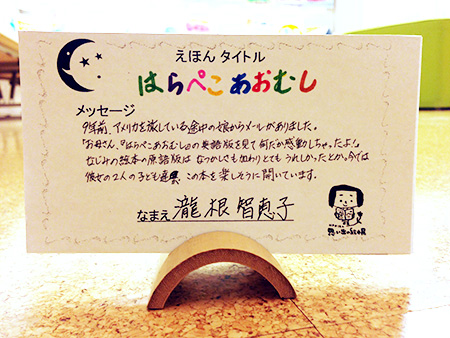 えほん タイトル
はらぺこ あおむし
メッセージ
9年前、アメリカを旅している途中の娘からメールがありました。
「お母さん、『はらぺこあおむし』の英語版を見て何だか感動しちゃったよ!」
なじみの絵本の原語版は なつかしさも加わりとても うれしかったとか。今では
彼女の2人の子ども達が この本を楽しそうに開いています。
なまえ 瀧根 智恵子
思い出の絵本展